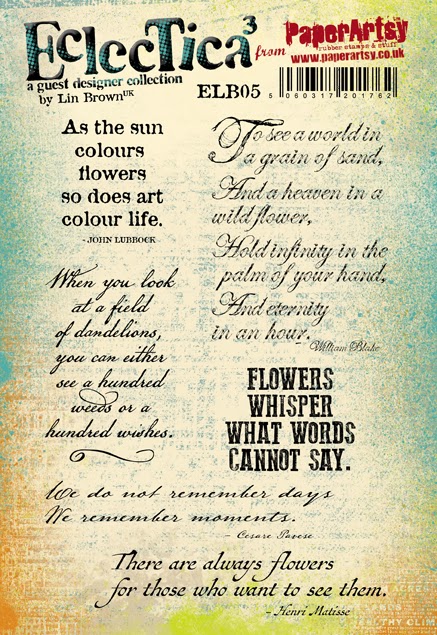 EclecTica³
from
PaperArtsy
rubber stamps & stuff
www.paperartsy.co.uk
a guest designer collection
by Lin Brown UK
ELB05
5 060317 201762
As the sun
colours
flowers
so does art
colour life.
- JOHN LUBBOCK
To see a world in
a grain of sand,
And a heaven in a
wild flower,
Hold infinity in the
palm of your hand,
And eternity
in an hour.
William Blake
When you look
at a field
of dandelions,
you can either
see a hundred
weeds or a
hundred wishes.
FLOWERS
WHISPER
WHAT WORDS
CANNOT SAY.
We do not remember days
We remember moments.
- Cesare Pavese
There are always flowers
for those who want to see them.
- Henri Matisse